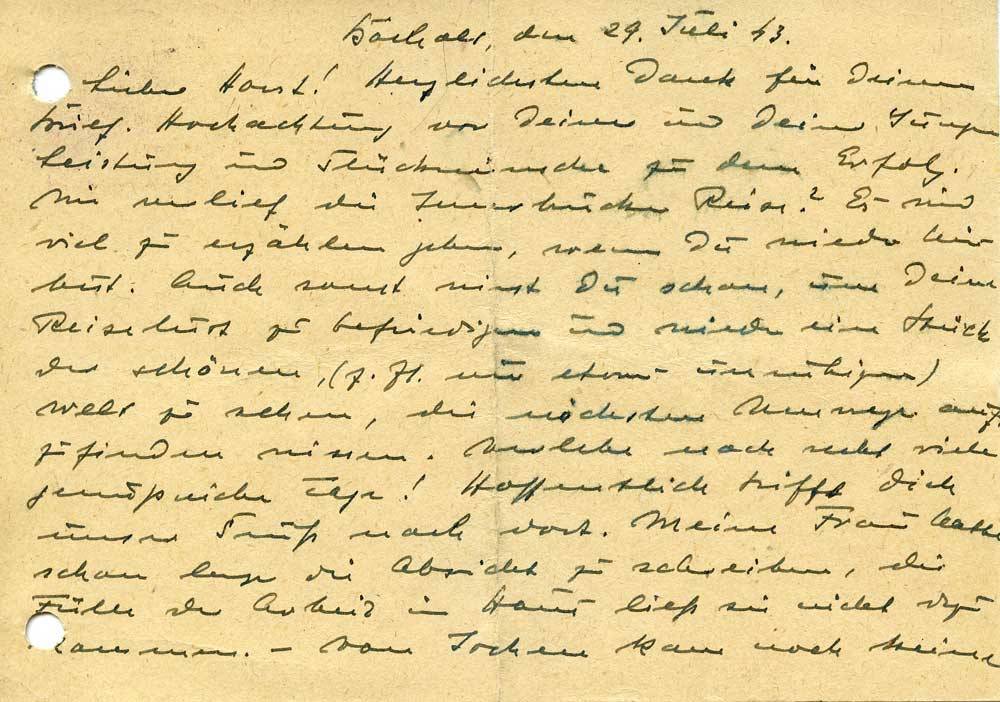 den 29. Juli 43.
Lieber Horst! Herzlichsten Dank für Deinen
Brief. Hochachtung vor Deiner und Deiner Jungen
Leistung und Glückwünsche zu dem Erfolg.
Wie verlief die Innsbrucker Reise? Es wird
viel zu erzählen geben, wenn Du wieder hier
bist. Auch sonst wirst Du schon, um Deine
Reiselust zu befriedigen und wieder ein Stück
der schönen, (z. Zt. nur etwas unruhigen)
Welt zu sehen, die nächsten Umwege auf-
zufinden wissen. Verlebe noch recht viele
genußreiche Tage! Hoffentlich trifft Dich
unser Gruß noch dort. Meine Frau hatte
schon lange die Absicht zu schreiben, die
Fülle der Arbeit im Haus ließ sie nicht dazu
kommen. – Von Jochen kam noch keine